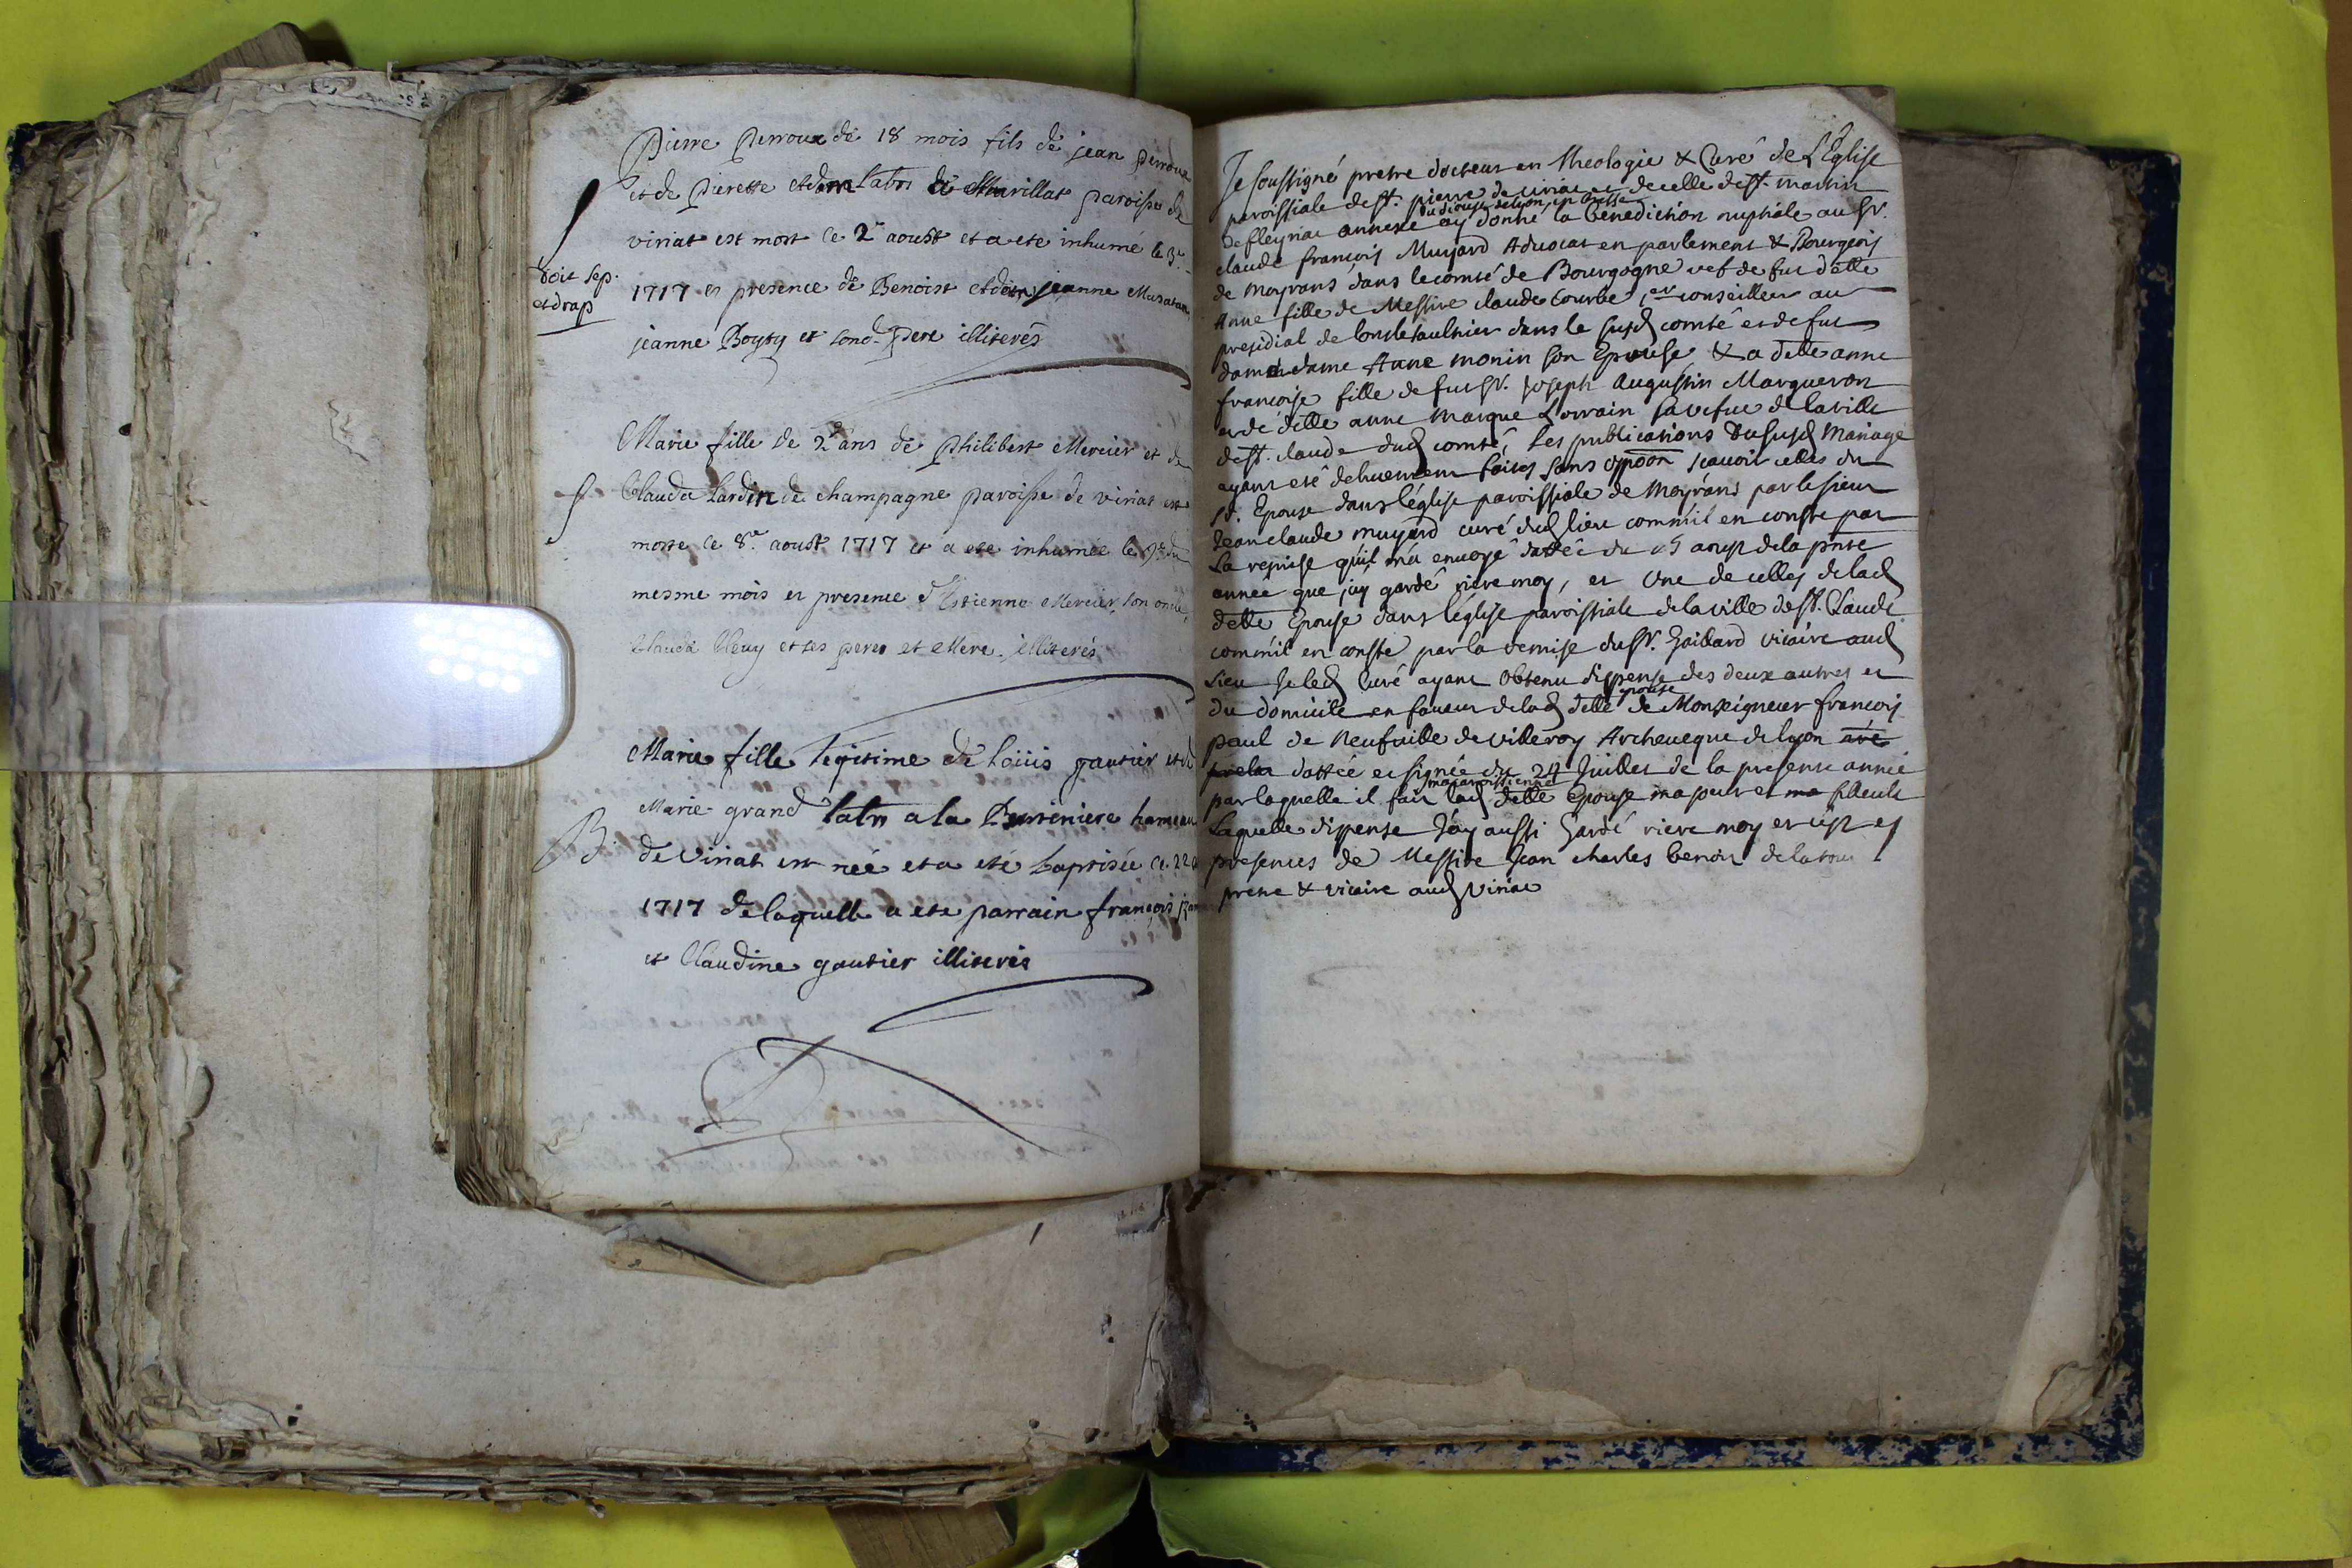 Pierre Perroux de 18 mois fils de jean perroux
et de Pierette labrs de Marillat paroisse de
viriat est mort le 2e aoust et a ete inhumé le 3e
doit sep.
et drap
1717 en presence de Benoist jeanne
jeanne Boysy et sond. Pere illiterés
Marie fille de 2 ans de Philibert Mercier et de
f
Clauda Lardin de champagne paroisse de viriat est
morte le 8.e aoust 1717 et a ete inhumée le 9e du
mesme mois en presence d'Etienne Mercier son oncle
Clauda et ses peres et Mere illiterés
Marie fille legitime de loüis gautier et de
Marie grand labrs a la hameau
B.
de viriat est neé et a eté baptisée ce 22
1717 de laquelle a ete parrain françois
et Claudine gautier illiterés
Je soussigné pretre docteur en Theologie & Curé de L'Eglise
paroissiale de st. pierre de viriat et de celle de st. martin
du diocese de lyon en bresse
de fleyriat annexe ay donné la benediction nuptiale au Sr.
claude françois Muyard Aduocat en parlement & Bourgeois
de Moyrans dans le comté de Bourgogne vef de fut dlle
Anne fille de Messire claude Courbe conseiller au
presidial de lonslesaulnier dans le susd comté et de fut
dame Anne monin son Epouse & a delle anne
françoise fille de fut Sr. Joseph Augustin Marqueron
et de delle anne marque Lorrain sa vefue de la ville
de st. claude dud comté, les publications du susd Mariage
ayant eté dehuement faites sans oppoon scauoir celles du
sr. Epoux dans l'église paroissiale de Moyrans par le sieur
Jean claude muyard curé dud lieu comm'il en conste par
La remise qu'il m'a enuoyé dattée du 15 aoust de la pnte
année que j'ay gardé riere moy, et Une de celles de lad
delle Epouse dans l'eglise paroissiale de la ville de st. Claude
comm'il en conste par la remise du Sr. Gaillard vicaire aud
Lieu Je led Curé ayant Obtenu dispense des deux autres et
epouse
du domicile en faueur de lad delle de Monseigneur françois
paul de Neufuille de villeroy Archeueque de lyon
dattée et signée du 24 Juillet de la presente année
ma paroissienne
par laquelle il fait lad delle Epouse
Laquelle dispense J'ay aussi Gardé riere moy et c'est es
presences de Messire Jean charles benoit de la tour
pretre & vicaire aud viriat